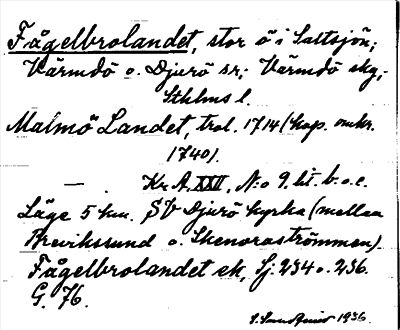 Fågelbrolandet, stor ö i Saltsjön;
Värmdö o. Djurö sr; Värmdö skg;
Sthlms l.
Malmö Landet, trol. 1714 (kop. omkr.
1740).
— . Kr. A. XXVI, N:o 9. lit. b. o. c.
Läge 5 km. SV Djurö kyrka (mellan
Brevikssund o. Skenoraströmmen)
Fågelbrolandet ek, Sj. 234 o. 236.
G. 76.
1936